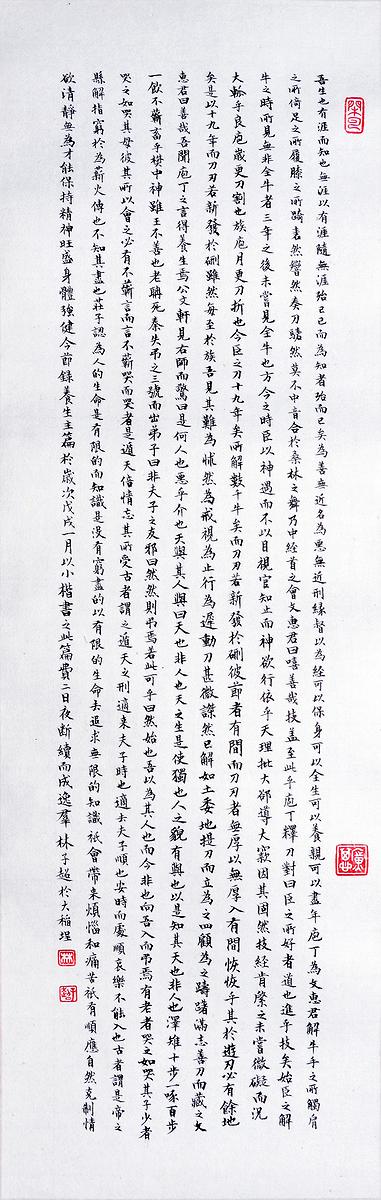 吾生也有涯而知也無涯以有涯隨無涯殆已已而為知者殆而已矣為善無近名為惡無近刑緣督以為經可以保身可以全生可以養親可以盡年庖丁為文惠君解牛手之所觸肩
之所倚足之所履膝之所踦砉然嚮然奏刀騞然莫不中音合於桑林之舞乃中經首之會文惠君曰嘻善哉技蓋至此乎庖丁釋刀對曰臣之所好者道也進乎技矣始臣之解
牛之時所見無非全牛者三年之後未嘗見全牛也方今之時臣以神遇而不以目視官知止而神欲行依乎天理批大郤導大窾因其固然技經肯綮之未嘗微礙而況
大軱乎良庖歲更刀割也族庖月更刀折也今臣之刀十九年矣所解數千牛矣而刀刃若新發於硎彼節者有間而刀刃者無厚以無厚入有間恢恢乎其於遊刃必有餘地
矣是以十九年而刀刃若新發於硎雖然每至於族吾見其難為怵然為戒視為止行為遲動刀甚微謋然已解如土委地提刀而立為之四顧為之躊躇滿志善刀而藏之文
惠君曰善哉吾聞庖丁之言得養生焉公文軒見右師而驚曰是何人也惡乎介也天與其人與曰天也非人也天之生是使獨也人之貌有與也以是知其天也非人也澤雉十步一啄百步
一飲不蘄畜乎樊中神雖王不善也老聃死秦失弔之三號而出弟子曰非夫子之友邪曰然然則弔焉若此可乎曰然始也吾以為其人也而今非也向吾入而弔焉有老者哭之如哭其子少者
哭之如哭其母彼其所以會之必有不蘄言而言不蘄哭而哭者是遁天倍情忘其所受古者謂之遁天之刑適來夫子時也適去夫子順也安時而處順哀樂不能入也古者謂是帝之
縣解指窮於為薪火傳也不知其盡也莊子認為人的生命是有限的而知識是沒有窮盡的以有限的生命去追求無限的知識祇會帶來煩惱和痛苦祇有順應自然克制情
欲清靜無為才能保持精神旺盛身體強健今節錄養生主篇於歲次戊戌一月以小楷書之此篇費二日夜斷續而成逸羣林子超於大稻埕